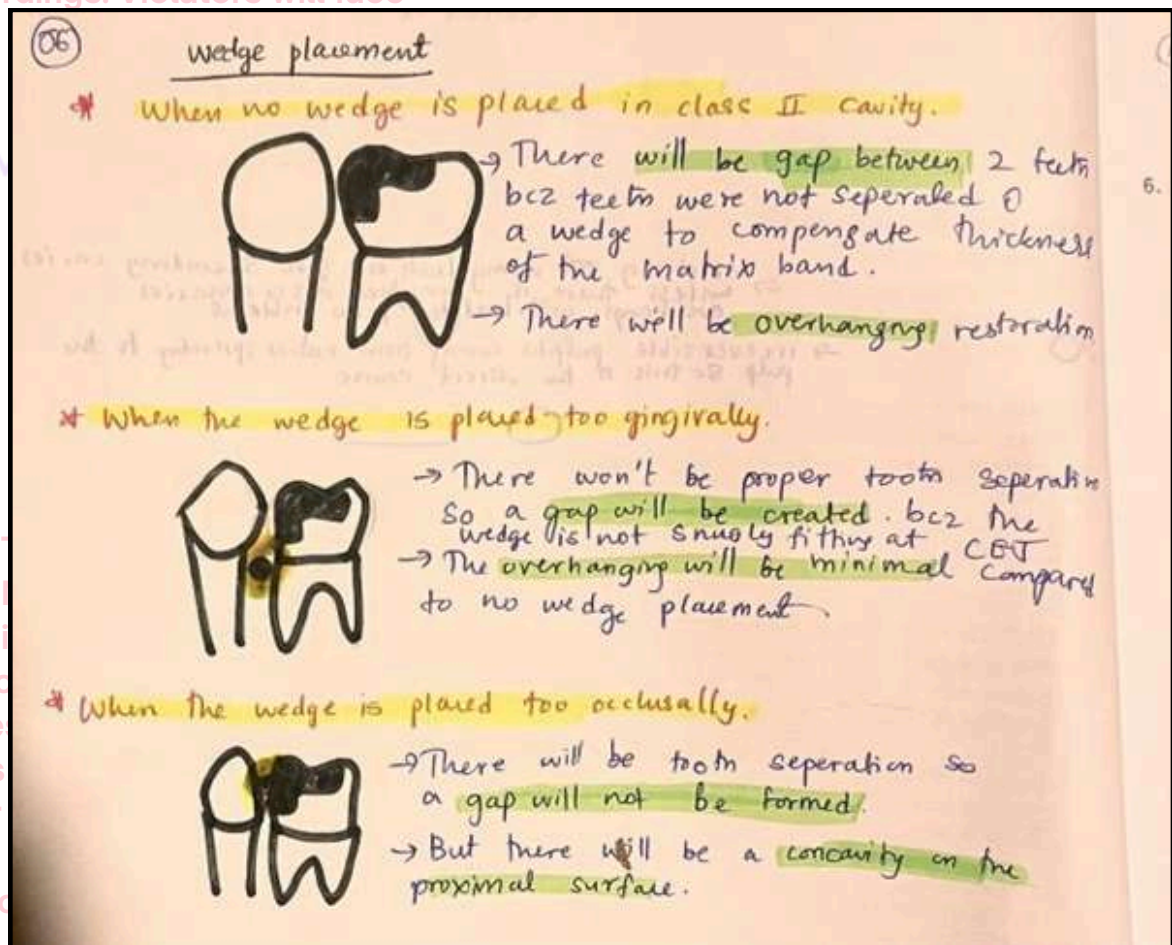 06
wedge placement
* When no wedge is placed in class II cavity.
→ There will be gap between 2 teeth
bcz teeth were not seperated
a wedge to compengate thickness
of the matrix band.
→ There will be overhanging restoration
6.
* When the wedge is placed too gingivally.
→ There won't be proper tooth seperation
so a gap will be created. bcz the
wedge is not snugly fitting at CEJ
→ The overhanging will be minimal compared
to no wedge placement.
* When the wedge is placed too occlusally.
→ There will be tooth seperation so
a gap will not be formed.
→ But there will be a concavity on the
proximal surface.